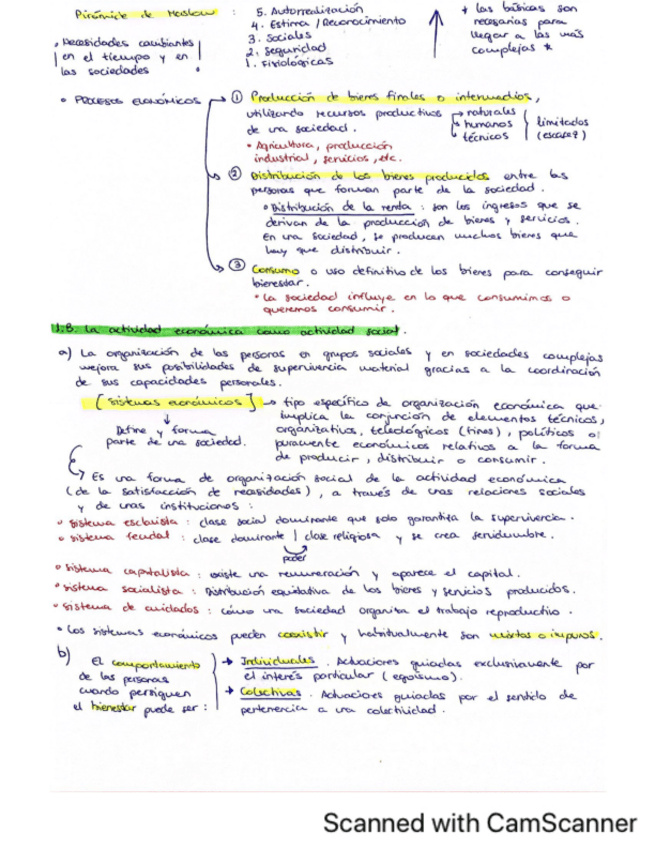 Pirámide de Maslow :
5. Autorrealización
4. Estima / Reconocimiento
3. Sociales
2. Seguridad
1. Fisiológicas
* las básicas son
necesarias para
llegar a las más
complejas *
• Necesidades cambiantes
en el tiempo y en
las sociedades •
• PROCESOS ECONÓMICOS
① Producción de bienes finales o intermedios,
utilizando recursos productivos → naturales
→ humanos
→ técnicos
limitados
(escasez)
de una sociedad.
• Agricultura, producción
industrial, servicios, etc.
② Distribución de los bienes producidos entre las
personas que forman parte de la sociedad.
• Distribución de la renta : son los ingresos que se
derivan de la producción de bienes y servicios.
En una sociedad, se producen muchos bienes que
hay que distribuir.
③ Consumo o uso definitivo de los bienes para conseguir
bienestar.
• La sociedad influye en lo que consumimos o
queremos consumir.
1.B. La actividad económica como actividad social.
a) La organización de las personas en grupos sociales y en sociedades complejas
mejora sus posibilidades de supervivencia material gracias a la coordinación
de sus capacidades personales.
[Sistemas económicos] → tipo específico de organización económica que
implica la conjunción de elementos técnicos,
organizativos, teleológicos (fines), políticos o
puramente económicos relativos a la forma
de producir, distribuir o consumir.
↓
Define y forma
parte de una sociedad.
→ Es una forma de organización social de la actividad económica
(de la satisfacción de necesidades), a través de unas relaciones sociales
y de unas instituciones :
• Sistema esclavista : clase social dominante que solo garantiza la supervivencia.
• Sistema feudal : clase dominante | clase religiosa y se crea servidumbre.
poder
• Sistema capitalista : existe una remuneración y aparece el capital.
• Sistema socialista : distribución equitativa de los bienes y servicios producidos.
• Sistema de cuidados : cómo una sociedad organiza el trabajo reproductivo.
• Los sistemas económicos pueden coexistir y habitualmente son mixtos o impuros.
b) El comportamiento
de las personas
cuando persiguen
el bienestar puede ser :
→ Individuales. Actuaciones guiadas exclusivamente por
el interés particular (egoísmo).
→ Colectivas. Actuaciones guiadas por el sentido de
pertenencia a una colectividad.
Scanned with CamScanner